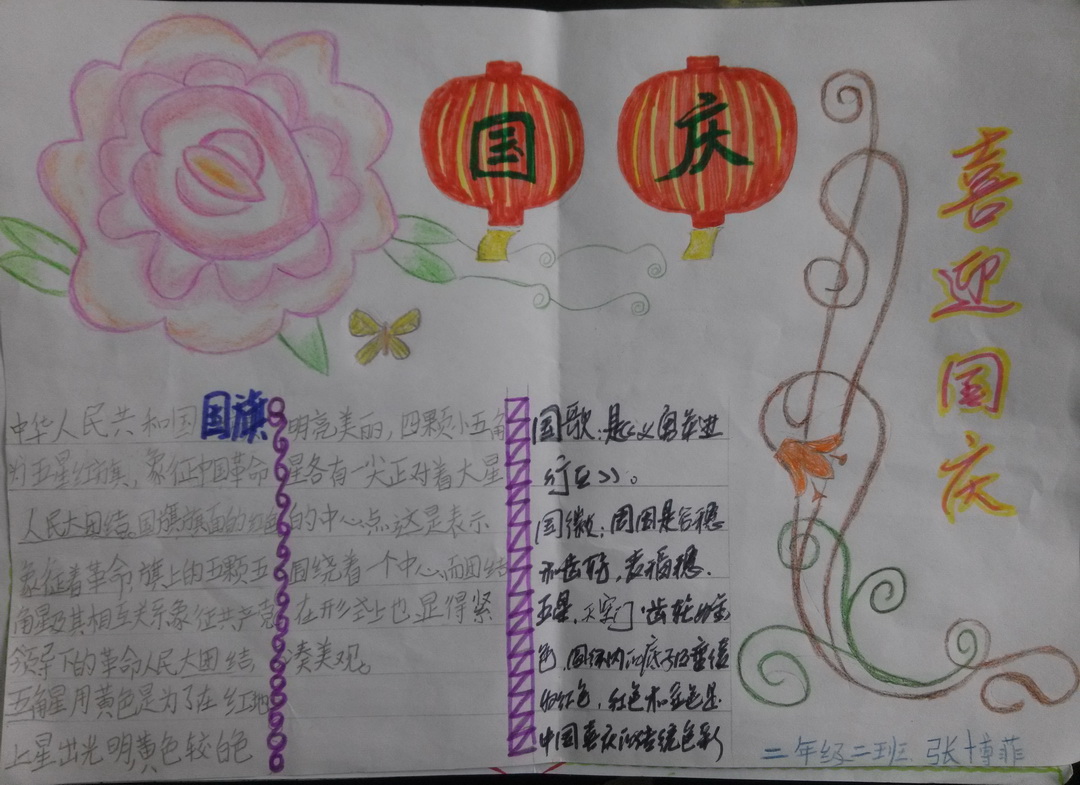 国 庆
喜迎国庆
中华人民共和国国旗
为五星红旗，象征中国革命
人民大团结。国旗旗面的红色
象征着革命，旗上的五颗五
角星及其相互关系象征共产党
领导下的革命人民大团结，
五角星用黄色是为了在红地
上星出光明黄色较白色
明亮美丽，四颗小五角
星各有一尖正对着大星
的中心点这是表示
围绕着一个中心而团结
在形式上也显得紧
奏美观。
国歌：是《义勇军进
行曲》。
国徽：周围是谷穗
和齿轮，麦稻穗.
五星、天安门、齿轮
色，圆环内的底子及垂绶
红色，红色和金色是
中国喜庆的传统色彩
二年级二班 张博菲